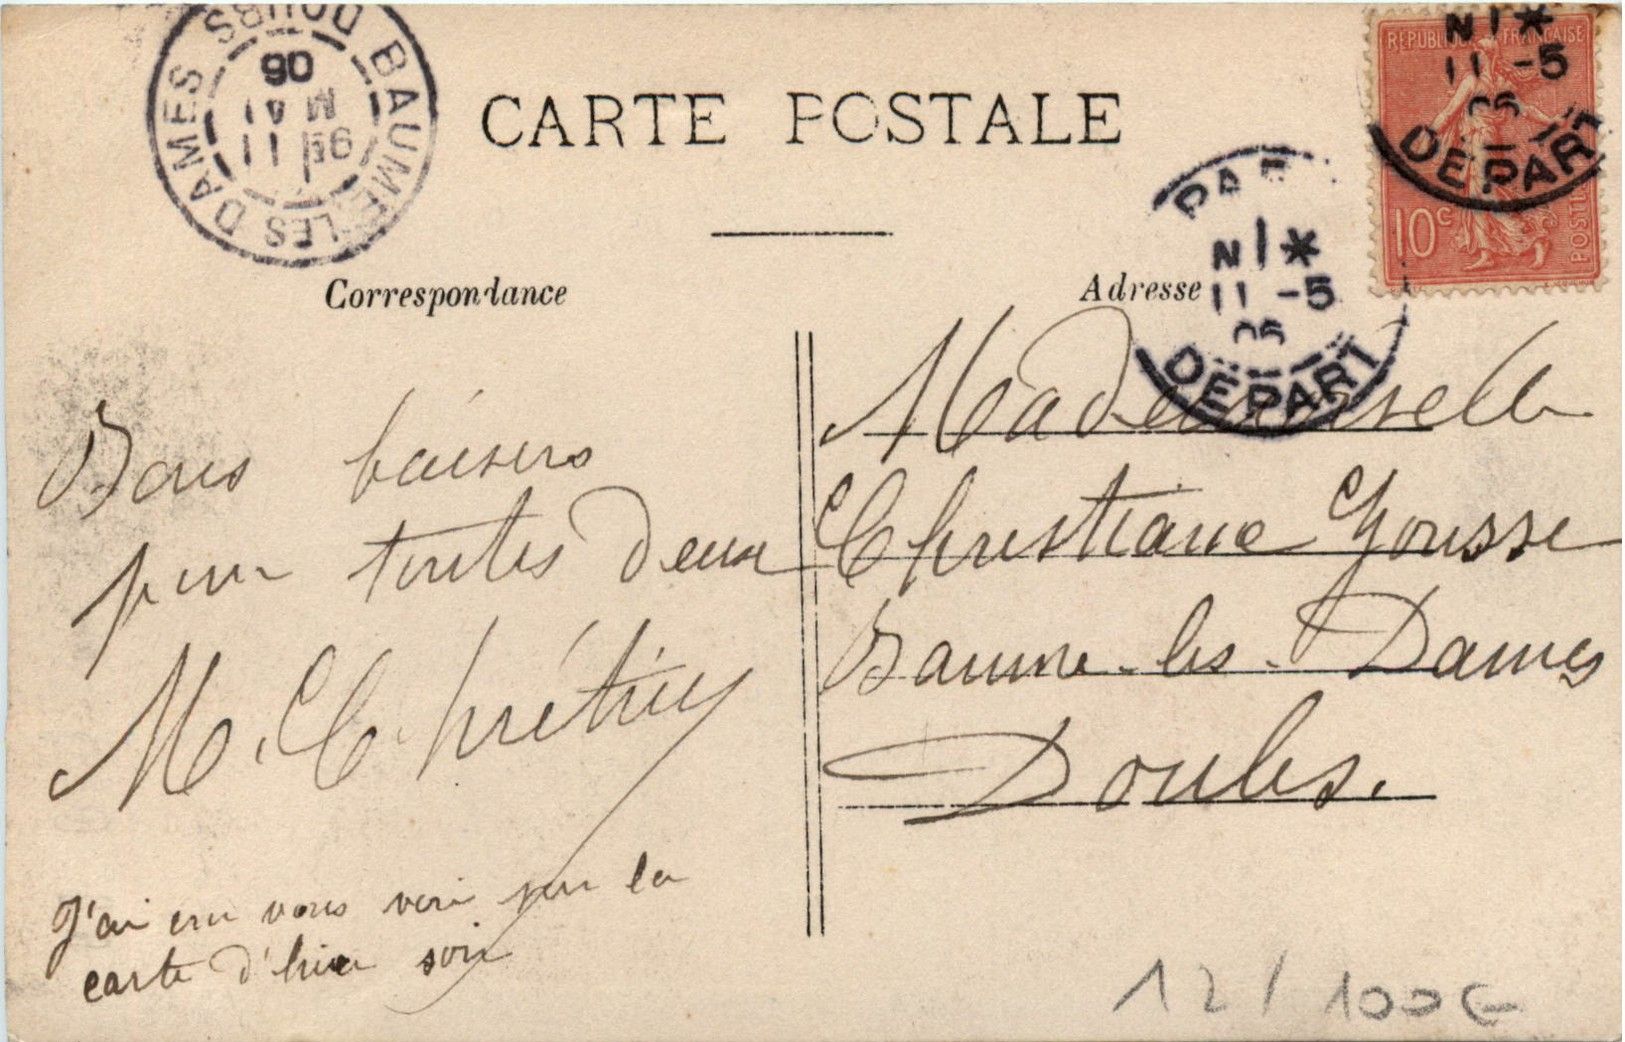 CARTE POSTALE
BAUME-LES-DAMES DOUBS
11 MAI
06
REPUBLIQUE FRANCAISE
10c
POSTES
N 1 *
11 -5
06
DEPART
N 1 *
11 -5
06
DEPART
Correspondance
Bons baisers
pour toutes deux
M. Chrétien
J'ai cru vous voir sur la
carte d'hier soir
Adresse
Mademoiselle
Christiane
Baume-les-Dames
Doubs.
12/ 100€